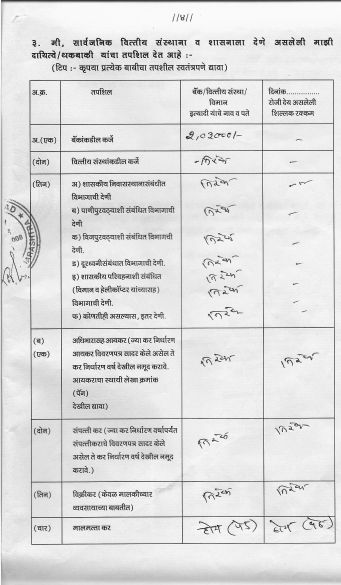 //४//
३. मी, सार्वजनिक वित्तीय संस्थाना व शासनाला देणे असलेली माझी
दायित्वे/थकबाकी यांचा तपशिल देत आहे :-
(टिप :- कृपया प्रत्येक बाबीचा तपशील स्वतंत्रपणे द्यावा)
अ.क्र. तपशिल बँक/वित्तीय संस्था/ विमान इत्यादी यांचे नाव व पत्ते दिनांक............... रोजी देय असलेली शिल्लक रक्कम
अ.(एक) बँकांकडील कर्जे 2,02000/- -
(दोन) वित्तीय संस्थांकडील कर्जे - निरंक -
(तिन) अ) शासकीय निवासस्थानासंबंधीत निरंक -
विभागाची देणी
ब) पाणीपुरवठ्याशी संबंधित विभागाची निरंक -
देणी
क) विजपुरवठ्याशी संबंधित विभागाची निरंक -
देणी.
ड) दूरध्वनीसंबंधात विभागाची देणी. निरंक -
इ) शासकीय परिवहनाशी संबंधित निरंक -
(विमान व हेलीकॉप्टर यांच्यासह) निरंक -
विभागाची देणी.
फ) कोणतीही असल्यास, इतर देणी. निरंक -
(ब) अधिभारासह आयकर (ज्या कर निर्धारण
(एक) आयकर विवरणपत्र सादर केले असेल ते निरंक निरंक
कर निर्धारण वर्ष देखील नमूद करावे.
आयकराचा स्थायी लेखा क्रमांक
(पॅन)
देखील द्यावा)
(दोन) संपत्ती कर (ज्या कर निर्धारण वर्षापर्यंत निरंक
संपत्तीकराचे विवरणपत्र सादर केले निरंक
असेल ते कर निर्धारण वर्ष देखील नमूद
करावे.)
(तिन) विक्रीकर (केवळ मालकीच्यार निरंक निरंक
व्यवसायाच्या बाबतीत)
(चार) मालमत्ता कर होय (पेड) होय (पेड)